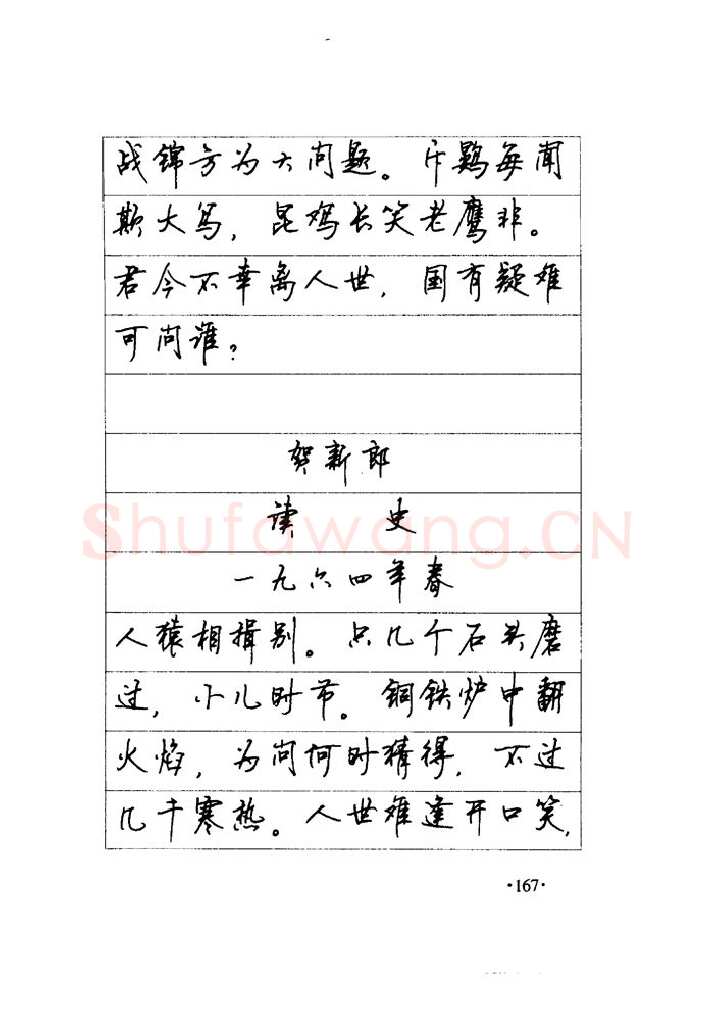 战锦方为大问题。斥鷃每闻
欺大鸟，昆鸡长笑老鹰非。
君今不幸离人世，国有疑难
可问谁？
贺新郎
读史
一九六四年春
人猿相揖别。只几个石头磨
过，小儿时节。铜铁炉中翻
火焰，为问何时猜得，不过
几千寒热。人世难逢开口笑，
·167·
Shufawang.CN